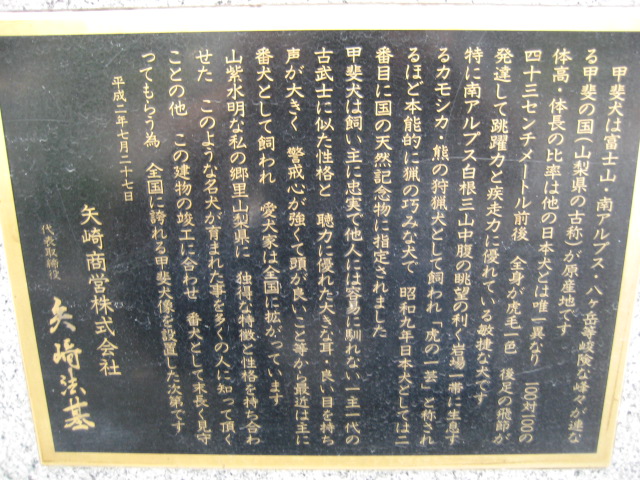 甲斐犬は富士山・南アルプス・八ヶ岳等峻険な峰々が連な
る甲斐の国(山梨県の古称)が原産地です
体高・体長の比率は他の日本犬とは唯一異なり 100対100の
四十三センチメートル前後 全身が虎毛一色 後足の飛節が
発達して跳躍力と疾走力に優れている敏捷な犬です
特に南アルプス白根三山中腹の眺望の利く岩場一帯に生息す
るカモシカ・熊の狩猟犬として飼われ「虎の一茎」と称され
るほど本能的に猟の巧みな犬で 昭和九年日本犬としては二
番目に国の天然記念物に指定されました
甲斐犬は飼い主に忠実で他人には容易に馴れない一主一代の
古武士に似た性格と 聴力に優れた大きな耳・良い目を持ち
声が大きく 警戒心が強くて頭が良いこと等から最近は主に
番犬として飼われ 愛犬家は全国に拡がっています
山紫水明な私の郷里山梨県に 独得な特徴と性格を持ち合わ
せた このような名犬が育まれた事を多くの人に知って頂く
ことの他 この建物の竣工に合わせ 番犬として末長く見守
ってもらう為 全国に誇れる甲斐犬像を設置した次第です
平成二年七月二十七日
矢崎商営株式会社
代表取締役 矢崎